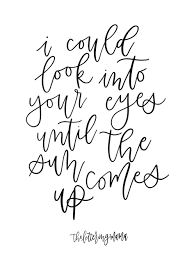 i could
look into
your eyes
until the
sun comes
up
theletteringmama